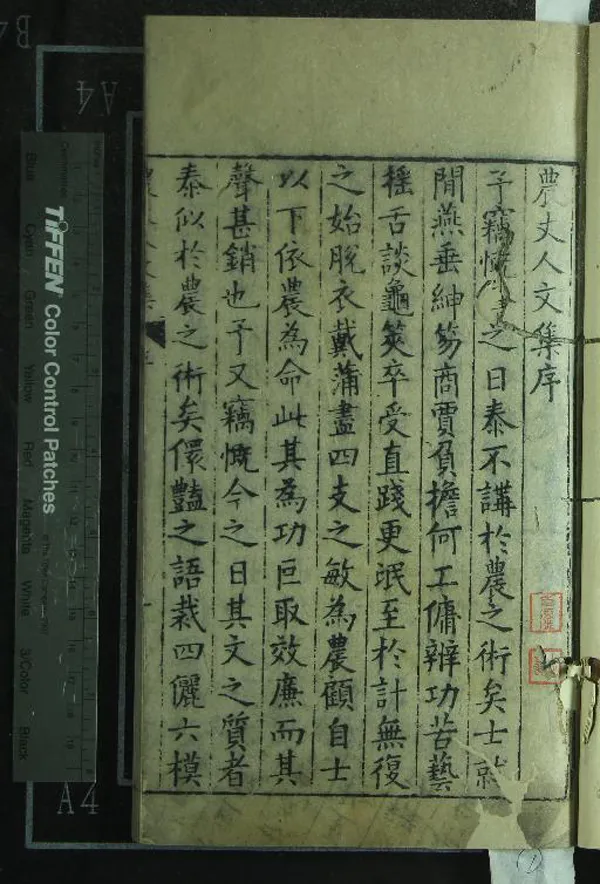 農丈人文集序
予竊慨今之日泰不講於農之術矣士就
閒燕垂紳笏商賈負擔何工傭辨功苦藝
搖舌談龜筴卒受直踐更氓至於計無復
之始脫衣戴蒲盡四支之敏為農顧自士
以下依農為命此其為功巨取效廉而其
聲甚銷也予又竊慨今之日其文之質者
泰似於農之術矣儇豔之語裁四儷六模
TIFFEN Color Control Patches
Blue
Cyan
Green
Yellow
Red
Magenta
White
3/Color
Black
A4
A4
B4
(1)